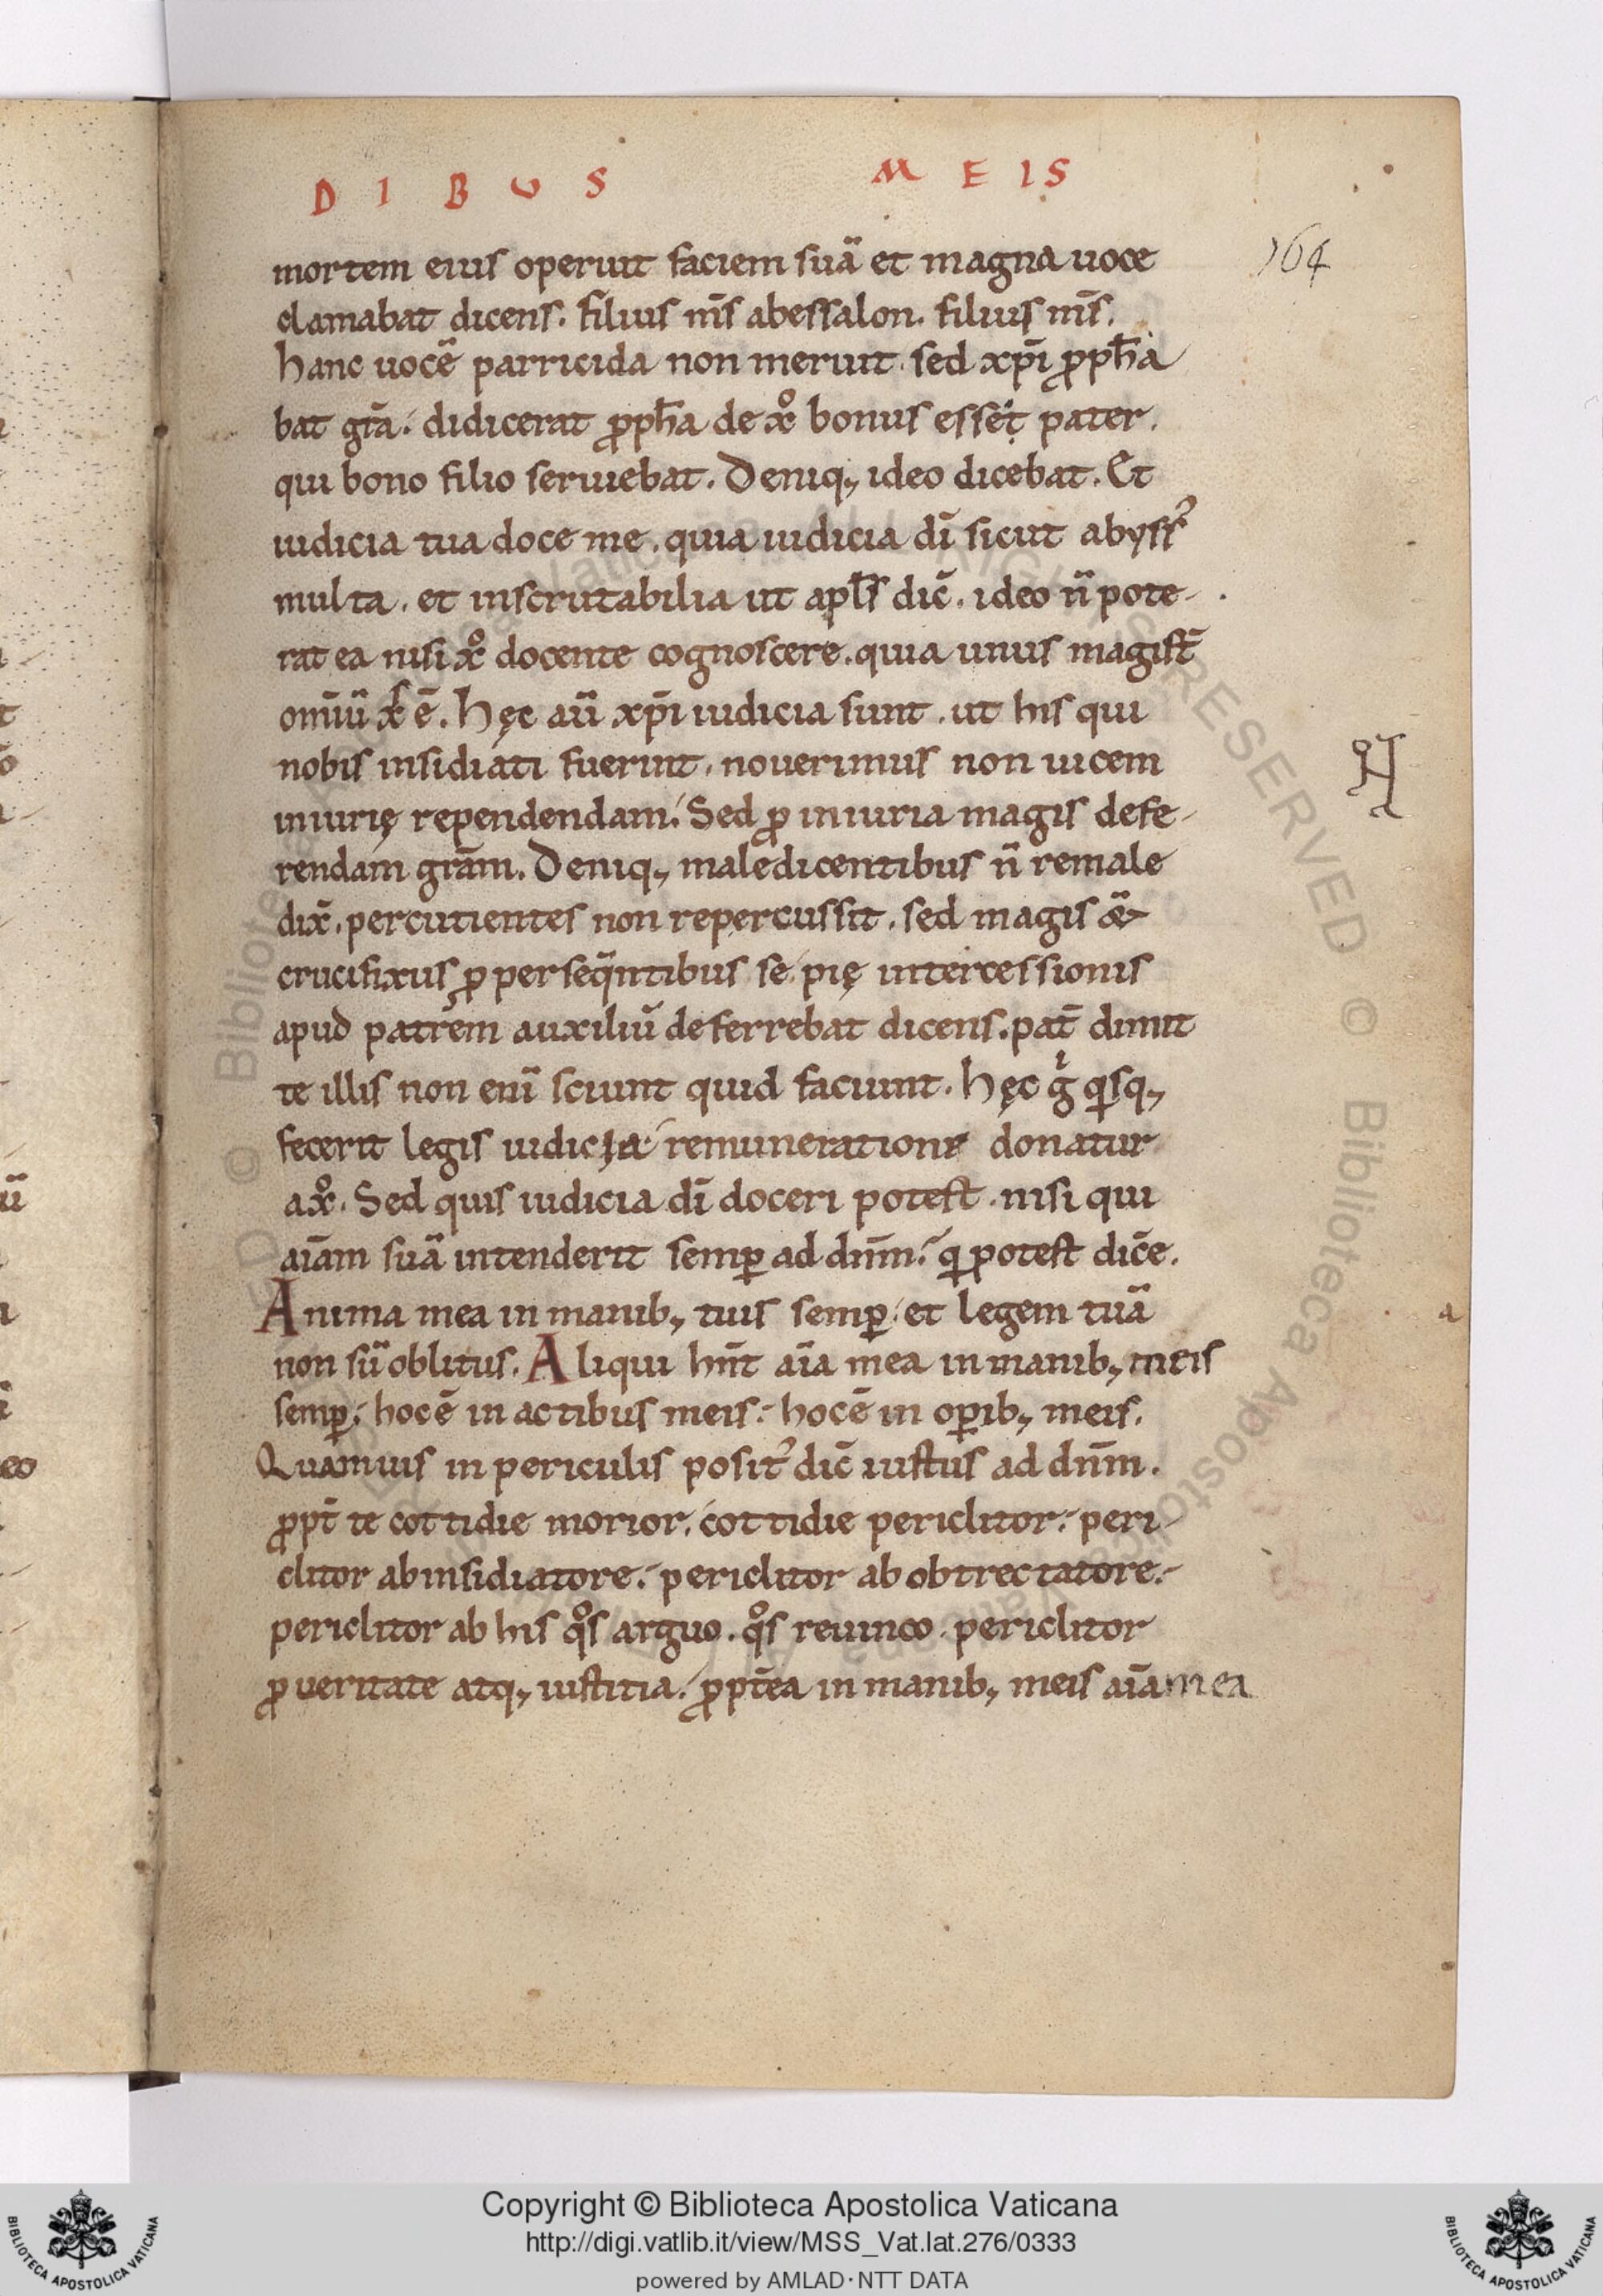 DIBUS MEIS
164
mortem eius operuit faciem suā et magna uoce
clamabat dicens. filius m̄s abessalon. filius m̄s.
hanc uocē parricida non meruit. sed xp̄i ꝓph̄a
bat gr̄a. didicerat ꝓph̄a de xͦ bonus esset pater.
qui bono filio seruiebat. Deniq; ideo dicebat. Et
iudicia tua doce me. quia iudicia dī sicut abyssꝰ
multa. et inscrutabilia ut apl̄s dic̄. ideo n̄ pote-
rat ea nisi xͦ docente cognoscere. quia unus magist̄
omīū xͨ ē. Hęc aū xp̄i iudicia sunt. ut his qui
nobis insidiati fuerint. nouerimus non uicem
iniurię rependendam. Sed ꝓ iniuria magis defe-
rendam grām. Deniq; maledicentibus n̄ remale
dix̄. percutientes non repercussit. sed magis &
crucifixus ꝓ perseq̄ntibus se pię intercessionis
apud patrem auxiliū deferrebat dicens. pat̄ dimit
te illis non enī sciunt quid faciunt. Hęc gͥ qͥsq;
fecerit legis iudicia remuneratione donatur
a xͦ. Sed quis iudicia dī doceri potest. nisi qui
aīam suā intenderit semꝑ ad dn̄m. qͥ potest dic̄e.
Anima mea in manib; tuis semꝑ. et legem tuā
non sū oblitus. Aliqui hn̄t aīa mea in manib; meis
semꝑ. hoc ē in actibus meis. hoc ē in oꝑib; meis.
Quamuis in periculis positꝰ dic̄ iustus ad dn̄m.
ꝓpt̄ te cottidie morior. cottidie periclitor. peri
clitor ab insidiatore. periclitor ab obtrectatore.
periclitor ab his qͦs arguo. qͦs reuinco. periclitor
ꝓ ueritate atq; iustitia. ꝓpt̄ea in manib; meis aīa mea
a
Copyright © Biblioteca Apostolica Vaticana
http://digi.vatlib.it/view/MSS_Vat.lat.276/0333
powered by AMLAD·NTT DATA
BIBLIOTECA APOSTOLICA VATICANA
BIBLIOTECA APOSTOLICA VATICANA